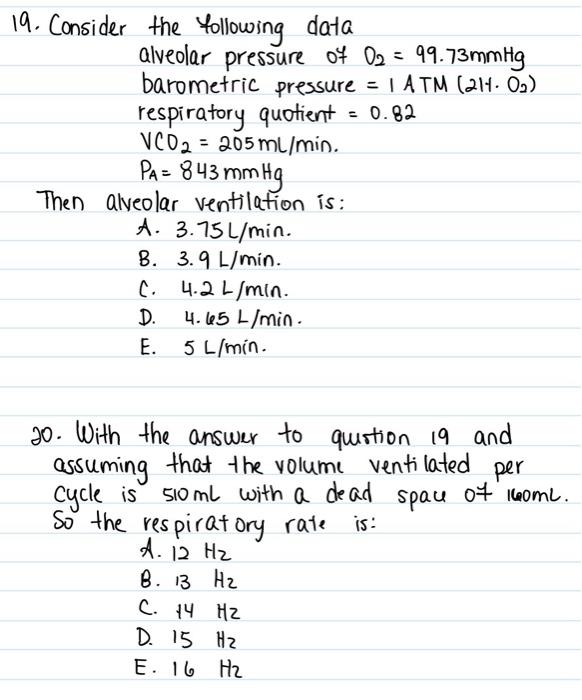 19. Consider the following data
alveolar pressure of O2 = 99.73mmHg
barometric pressure = 1 ATM (21%. O2)
respiratory quotient = 0.82
VCO2 = 205mL/min.
PA = 843mmHg
Then alveolar ventilation is:
A. 3.75L/min.
B. 3.9 L/min.
C. 4.2 L/min.
D. 4.65 L/min.
E. 5 L/min.
20. With the answer to qustion 19 and
assuming that the volume ventilated per
cycle is 510mL with a dead space of 160mL.
So the respiratory rate is:
A. 12 Hz
B. 13 Hz
C. 14 Hz
D. 15 Hz
E. 16 Hz